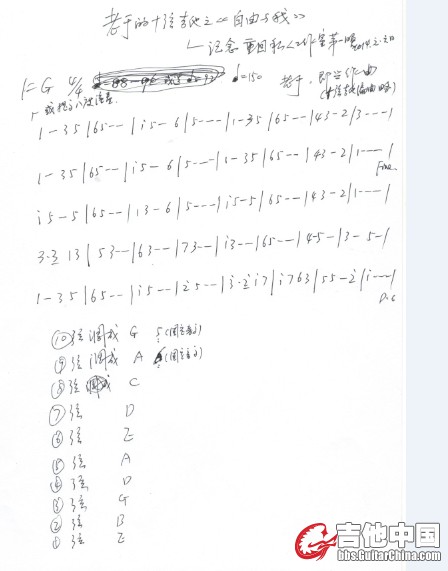 老于的十弦吉他之《自由与我》
1=G 4/4 ♩=150 老于
1-35|65--|i5-6|5---|1-35|65--|43-2|3---|
1-35|65--|i5-6|5---|1-35|65--|43-2|1---|
Fine
i5-5|65--|i3-6|5---|i5-5|65--|43-2|1---|
3·3 13|53--|63--|73--|i3--|65--|45-|3-5-|
1-35|65--|i5--|25--|3-2i7|i763|55-2|i---|
D.C
⑩弦调成 G 5(
⑨弦调成 A 6(
⑧弦调成 C
⑦弦 D
⑥弦 E
⑤弦 A
④弦 D
③弦 G
②弦 B
①弦 E
吉他中国
bbs.GuitarChina.com